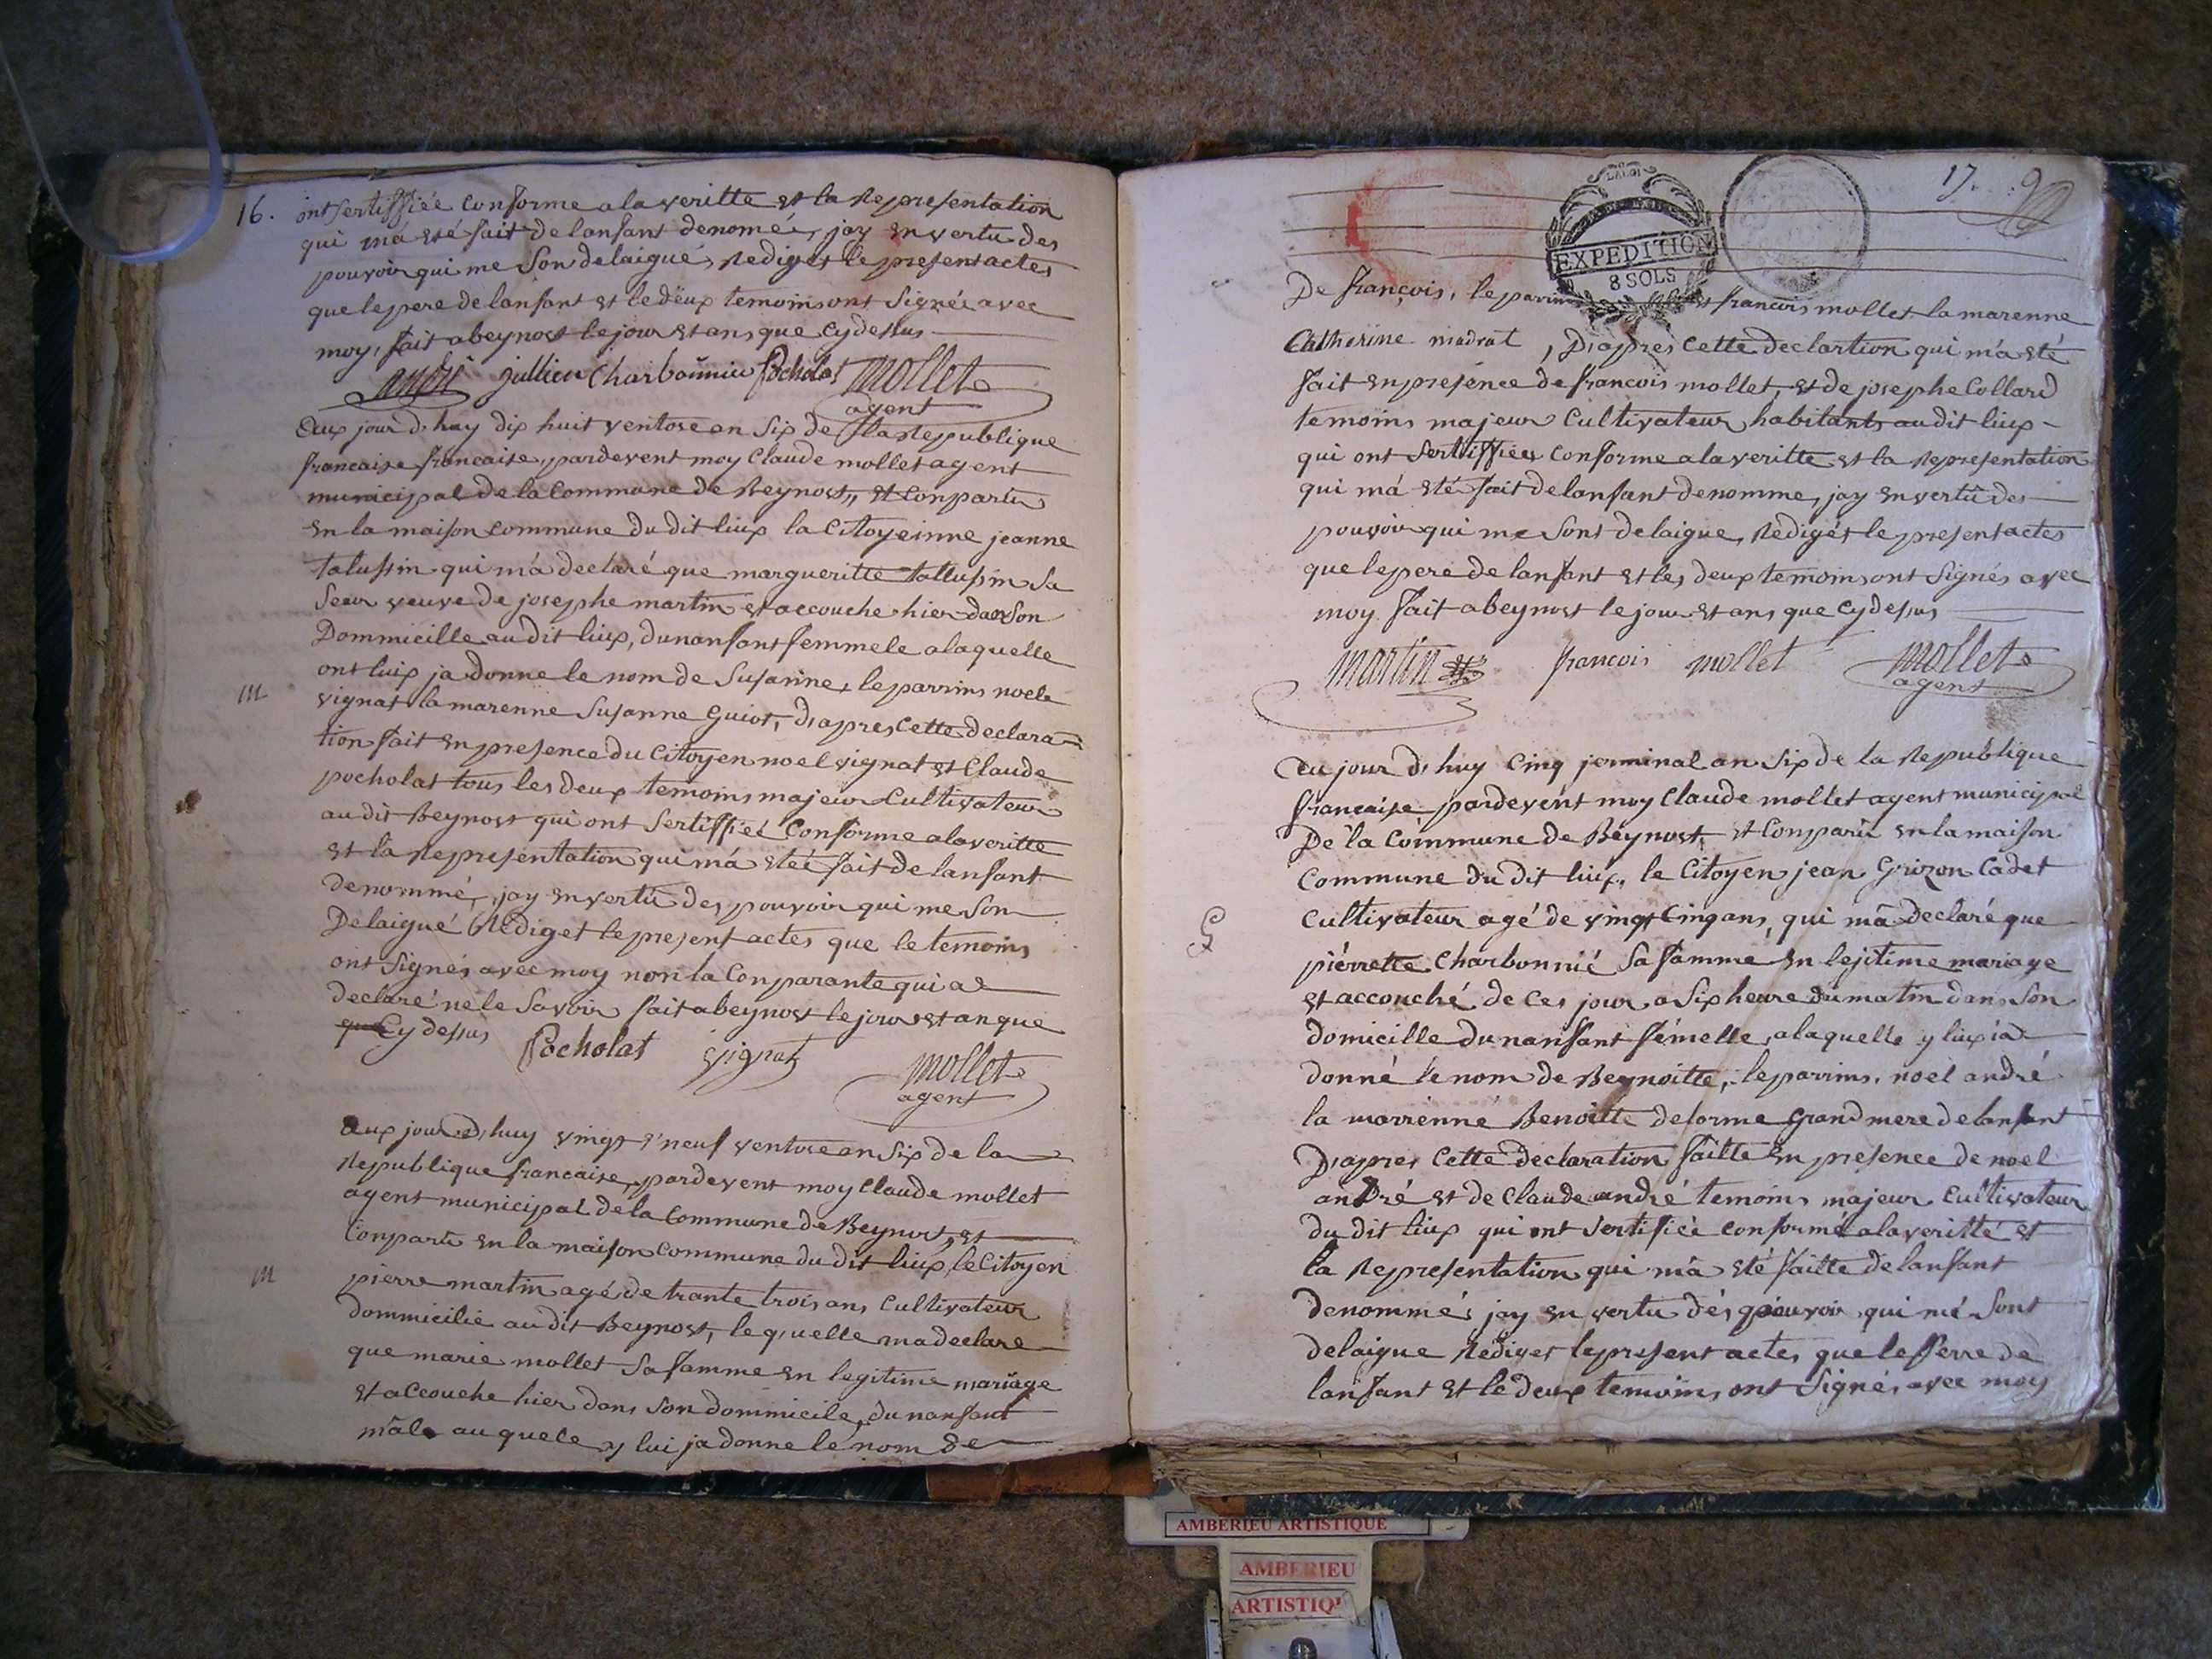 16.
ont sertiffiée conforme a la veritte et la Representation
qui má eté fait de lanfant denomée, jay en vertu des
pouvoir qui me Son delaigué, Rediget le present actes
que le pere de lanfant et le deux temoins ont Signée avec
moy, fait a beynost le jour et ans que cy dessus
andré jullien Charbonnié Pocholat mollet
agent
Aux jour d'huy dix huit ventose an Six de la Republique
francaise francaise, pardevent moy Claude mollet agent
municipal de la Commune de Beynost, et Conparu
en la maison commune du dit liux la Citoyeinne jeanne
talussin qui má declaré que margueritte tallussin Sa
Seur veuve de josephe martin et accouche hier dans Son
Dommicille au dit liux, dunanfant femmele a laquelle
ont luix ja donne le nom de Susanne, le parrins noel
m
vignat la marenne Susanne guiot, d'apres Cette declara=
tion fait en presence du Citoyen noel vignat et Claude
pocholat tous les deux temoins majeur Cultivateur
au dit Beynost qui ont Sertiffiée Conforme a la veritte
et la Representation qui má eteé fait de lanfant
denommé, jay en vertu des pouvoir qui me Son
Delaigué Rediget le present actes que le temoins
ont Signés avec moy non la Conparante qui a
declaré ne le Savoir fait a beynost le jour et an que
que Cy dessus
Pocholat vignat mollet
agent
Aux jour d'huy vingt e neuf ventose an Six de la
Republique francaise, pardevent moy Claude mollet
agent municipal de la Commune de Beynost, et
Conparu en la maison Commune du dit liux, le Citoyen
m
pierre martin agé de trante trois ans Cultivateur
dommicilié au dit Beynost, le quelle ma declare
que marie mollet Sa famme en legitime mariage
et accouche hier dans Son dommicile, du nanfant
mâle au quele y lui ja donne le nom de
17.
LA LOI
EXPEDITION
8 SOLS
De françois, le parrins francois mollet la marenne
Catherine madrat, D'apres Cette declartion qui m'a eté
fait en presence de francois mollet, et de josephe Collard
temoins majeur Cultivateur habitants au dit liux
qui ont Sertiffiées Conforme a la veritte et la Representation
qui má eté fait de lanfant denomme, jay en vertû des
pouvoir qui me Sont delaigue, Redigét le present actes
que le pere de lanfant et les deux temoins ont Signés avec
moy fait a beynost le jour et ans que cy dessus
martin francois mollet mollet
agent
Au jour d'huy Cinq jerminal an Six de la Republique
francaise pardevent moy Claude mollet agent municipal
De la Commune de Béynost, et Comparu en la maison
Commune du dit liux, le Citoyen jean Grizon Cadet
G
Cultivateur agé de vingt Cinq ans, qui mâ declaré que
piérrette Charbonnié Sa famme en lejitime mariage
et accouché de Ces jour a Six heure du matin dans Son
domicille du nanfant fémelle, a laquelle y lui ja
donné le nom de Beynoitte, le parrins, noel andré
la marrenné Benoitte delorme grand mere de lanfant
D'apres Cette declaration faitte en presence de noel
andré et de Claude andré temoins majeur Cultivateur
du dit liux qui ont Sertifiée conformé a la veritté et
la Representation qui mâ eté faitte de lanfant
denommés jay en vertu dés pouvoir qui mé Sont
delaigue Rediget le present actes que le Perre de
lanfant et le deux temoins ont Signés avec moy
AMBERIEU ARTISTIQUE
AMBERIEU
ARTISTIQU